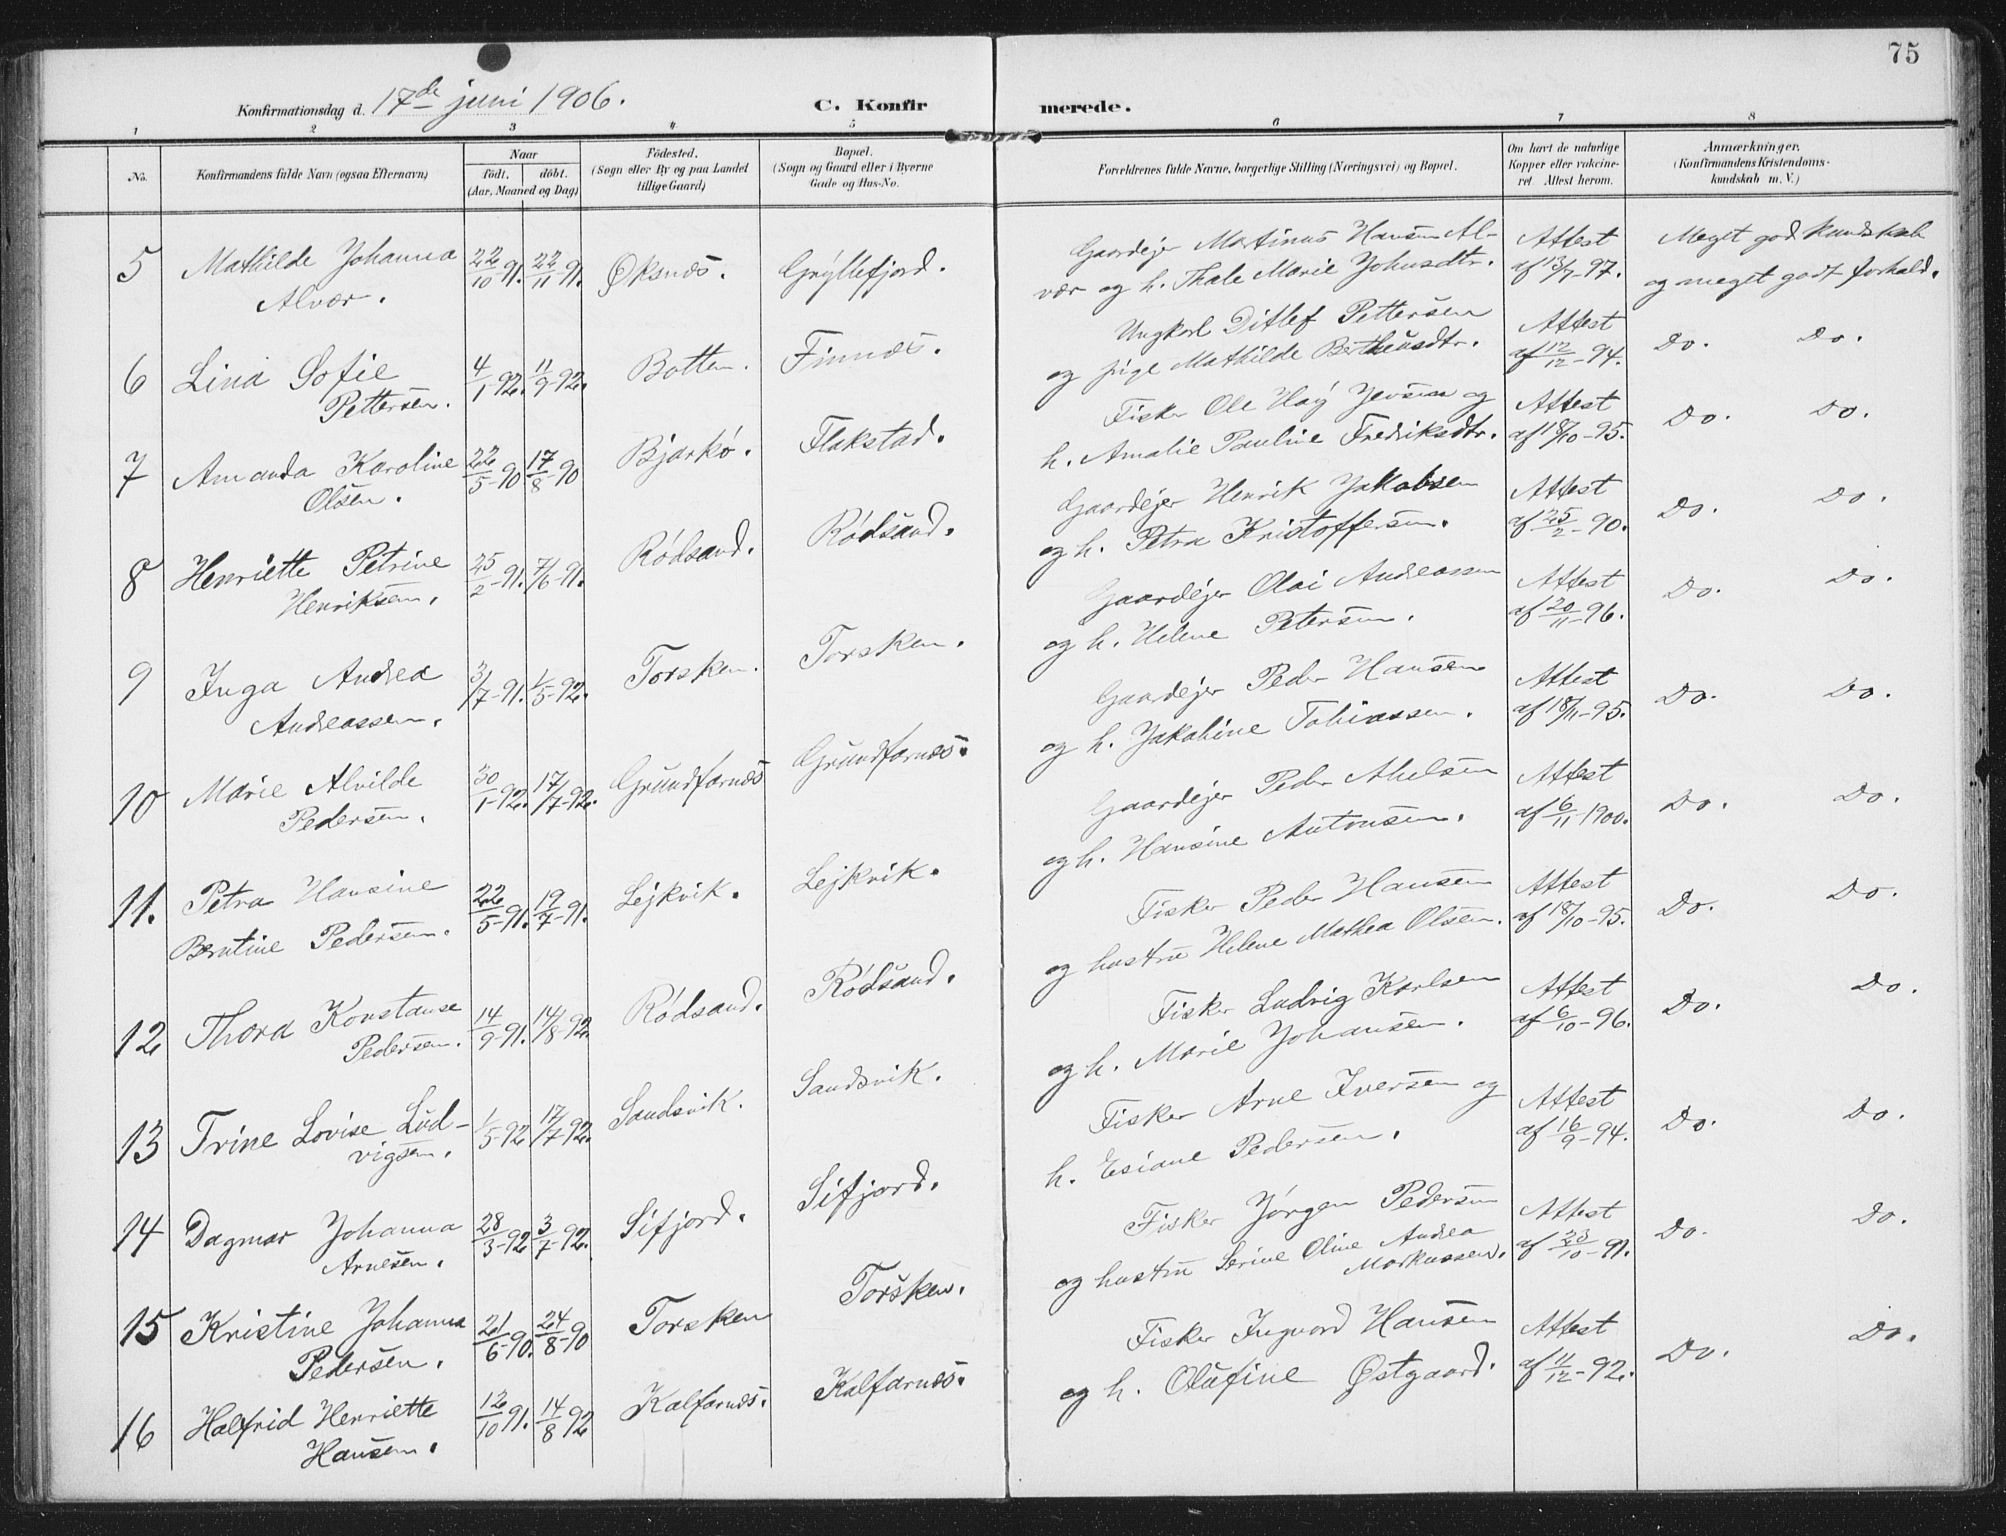 75
Konfirmationsdag d. 17de juni 1906.
C. Konfirmerede.
1 2 3 4 5 6 7 8
No.
Konfirmandens fulde Navn (ogsaa Efternavn)
Naar
födt. döbt.
(Aar, Maaned og Dag)
Födested.
(Sogn eller By og paa Landet
tillige Gaard)
Bopæl.
(Sogn og Gaard eller i Byerne
Gade og Hus-No.
Forældrenes fulde Navne, borgerlige Stilling (Næringsvei) og Bopæl.
Om havt de naturlige
Kopper eller vakcine-
ret. Attest herom.
Anmærkninger.
(Konfirmandens Kristendoms-
kundskab m. V.)
5 Mathilde Johanna 22/10-91. 22/11-91. Øksnes. Gryllefjord. Gaardejer Martinus Hansen Al- Attest Meget god kundskab
Alvær. vær og h. Thale Marie Johnsdtr. af 13/7-97. og meget godt forhold.
6 Lina Sofie 4/1-92. 11/9-92. Botten. Finnæs. Ungkarl Ditlef Pettersen Attest Do. Do.
Pettersen. og pige Mathilde Bertheusdtr. af 12/12-94.
7 Amanda Karoline 22/5-90 17/8-90 Bjarkö. Flakstad. Fisker Ole Hoy Jensen og Attest Do. Do.
Olsen. h. Amalie Pauline Fredriksdtr. af 18/10-95.
8 Henriette Petrine 25/2-91. 7/6-91. Rödsand. Rödsand. Gaardejer Henrik Jakobsen Attest Do. Do.
Henriksen. og h. Petra Kristoffersen. af 25/2-90.
9 Inga Andrea 3/7-91. 1/5-92. Torsken. Torsken. Gaardejer Olai Andreassen Attest Do. Do.
Andreassen. og h. Helene Petersen. af 20/11-96.
10 Marie Alvilde 30/1-92. 17/7-92. Grundfarnes Grundfarnes. Gaardejer Peder Hansen Attest Do. Do.
Pedersen. og h. Jakobine Tobiassen. af 18/11-95.
11. Petra Hansine 22/5-91. 19/7-91. Lejkvik. Lejkvik. Gaardejer Peder Abelsen Attest Do. Do.
Berntine Pedersen. og h. Hansine Antonsen. af 6/11-1900.
12 Thora Konstanse 14/9-91. 14/8-92. Rödsand. Rödsand. Fisker Peder Hansen Attest Do. Do.
Pedersen. og hustru Helene Mathea Olsen. af 18/10-95.
13 Trine Lovise Lud- 1/5-92 17/7-92. Sandsvik. Sandsvik. Fisker Ludvig Karlsen Attest Do. Do.
vigsen. og h. Marie Johansen. af 6/10-96.
14 Dagmar Johanna 28/3-92 3/7-92. Sifjord. Sifjord. Fisker Arne Iversen og Attest Do. Do.
Arnesen. h. Esiane Pedersen. af 16/9-94.
15 Kristine Johanna 21/6-90. 24/8-90 Torsken Torsken. Fisker Jörgen Pedersen Attest Do. Do.
Pedersen. og hustru Serine Oline Andrea af 23/10-91.
Markussen.
16 Halfrid Henriette 12/10-91. 14/8-92 Kalfarnes. Kalfarnes. Fisker Ingvard Hansen Attest Do. Do.
Hansen. og h. Olufine Østgaard. af 11/12-92.